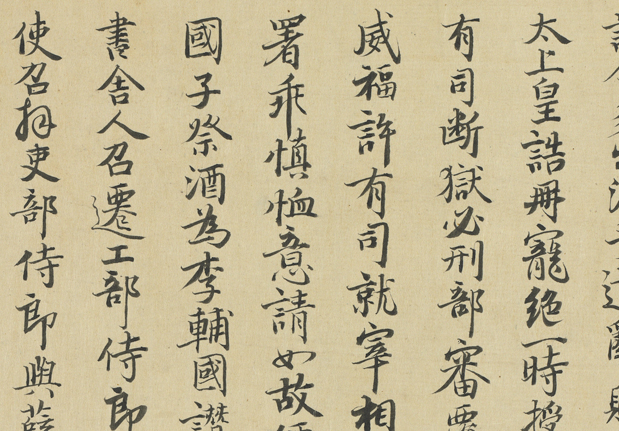 太上皇誥冊寵絶一時授
有司断獄必刑部審覆
威福許有司就宰相
署乖慎恤意請如故便
國子祭酒為李輔國譖
書舍人召遷工部侍郎
使召拜吏部侍郎與薛